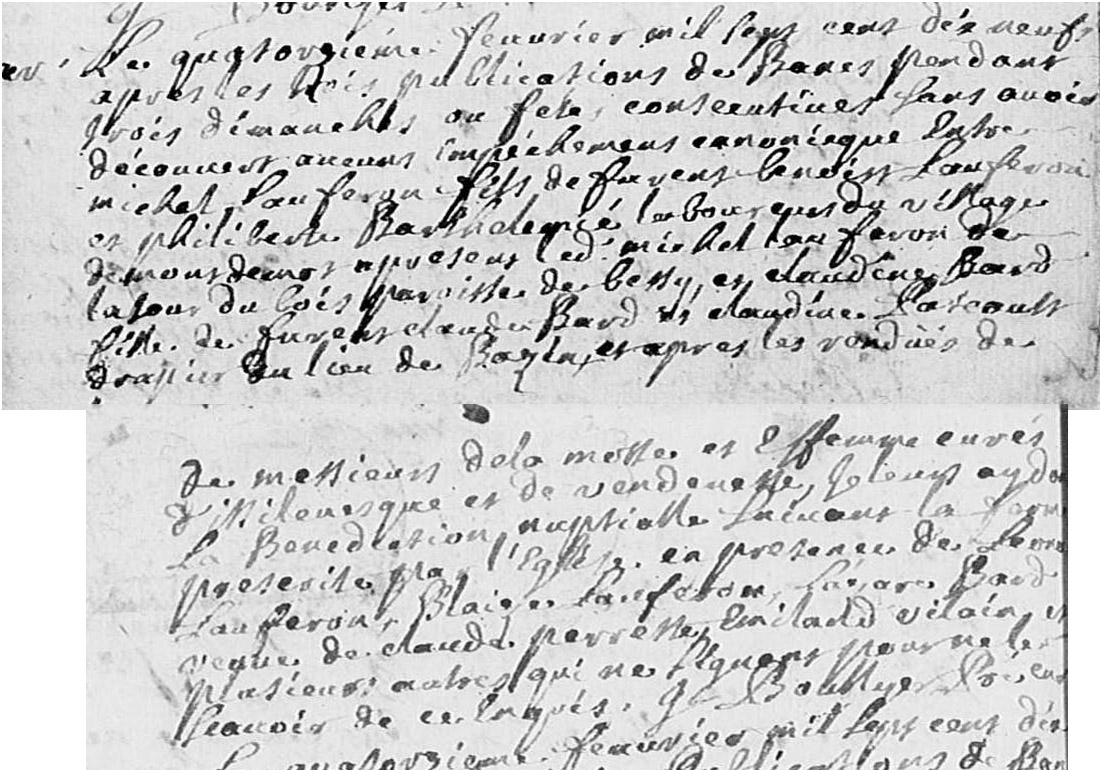 Le quatorziéme feuvrier mil sept cent déx neufs
apres les trois publications de Bancs pendant
trois dimanches ou fetes consecutives sans avoir
découvert aucuns impéchement canonicque Entre
michel Lauferon fils de furent benoist Lauferon
et philiberte Barthelemié laboureurs du village
de mont demot apresent led. michel lauferon de
latour du bois parroisse de bessy, et claudine Bard
fille de furent claude Bard et claudine Lascoust
drapier du lieu de Bazin, et apres les renduës de
de messieurs dela motte et Effemme curés
d'issilevesque et de vendenesse, Je leurs ay don
La Benediction nuptialle suivant la form
prescrite par l'Eglise en presence de Leonn
Lauferon, Blaise Lauferon, Lazare Bard
veque de claude perrette, Emiland vilain, et
plusieurs autres qui ne signent pour ne le
scavoir de ce Enquis. Boullyer Prieur
Le quatorzieme feuvrier mil sept cent dix
publications de Ban